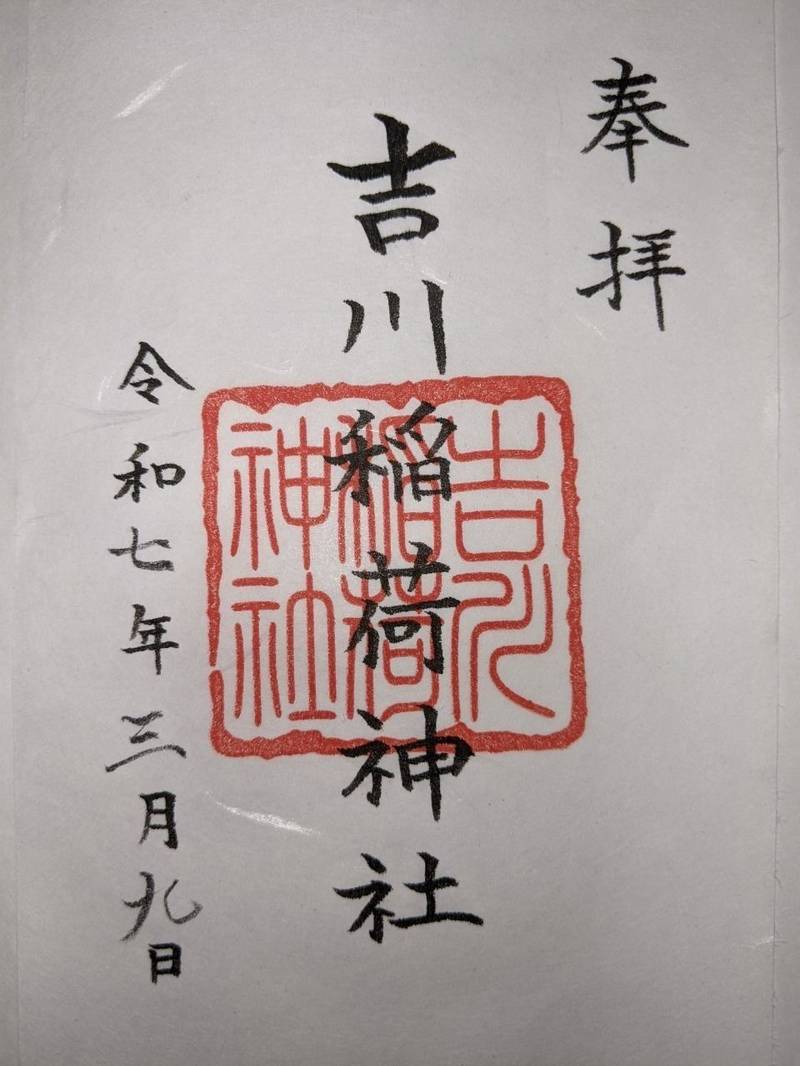 奉拝
吉川稲荷神社
吉川
稲荷
神社
令和七年三月九日